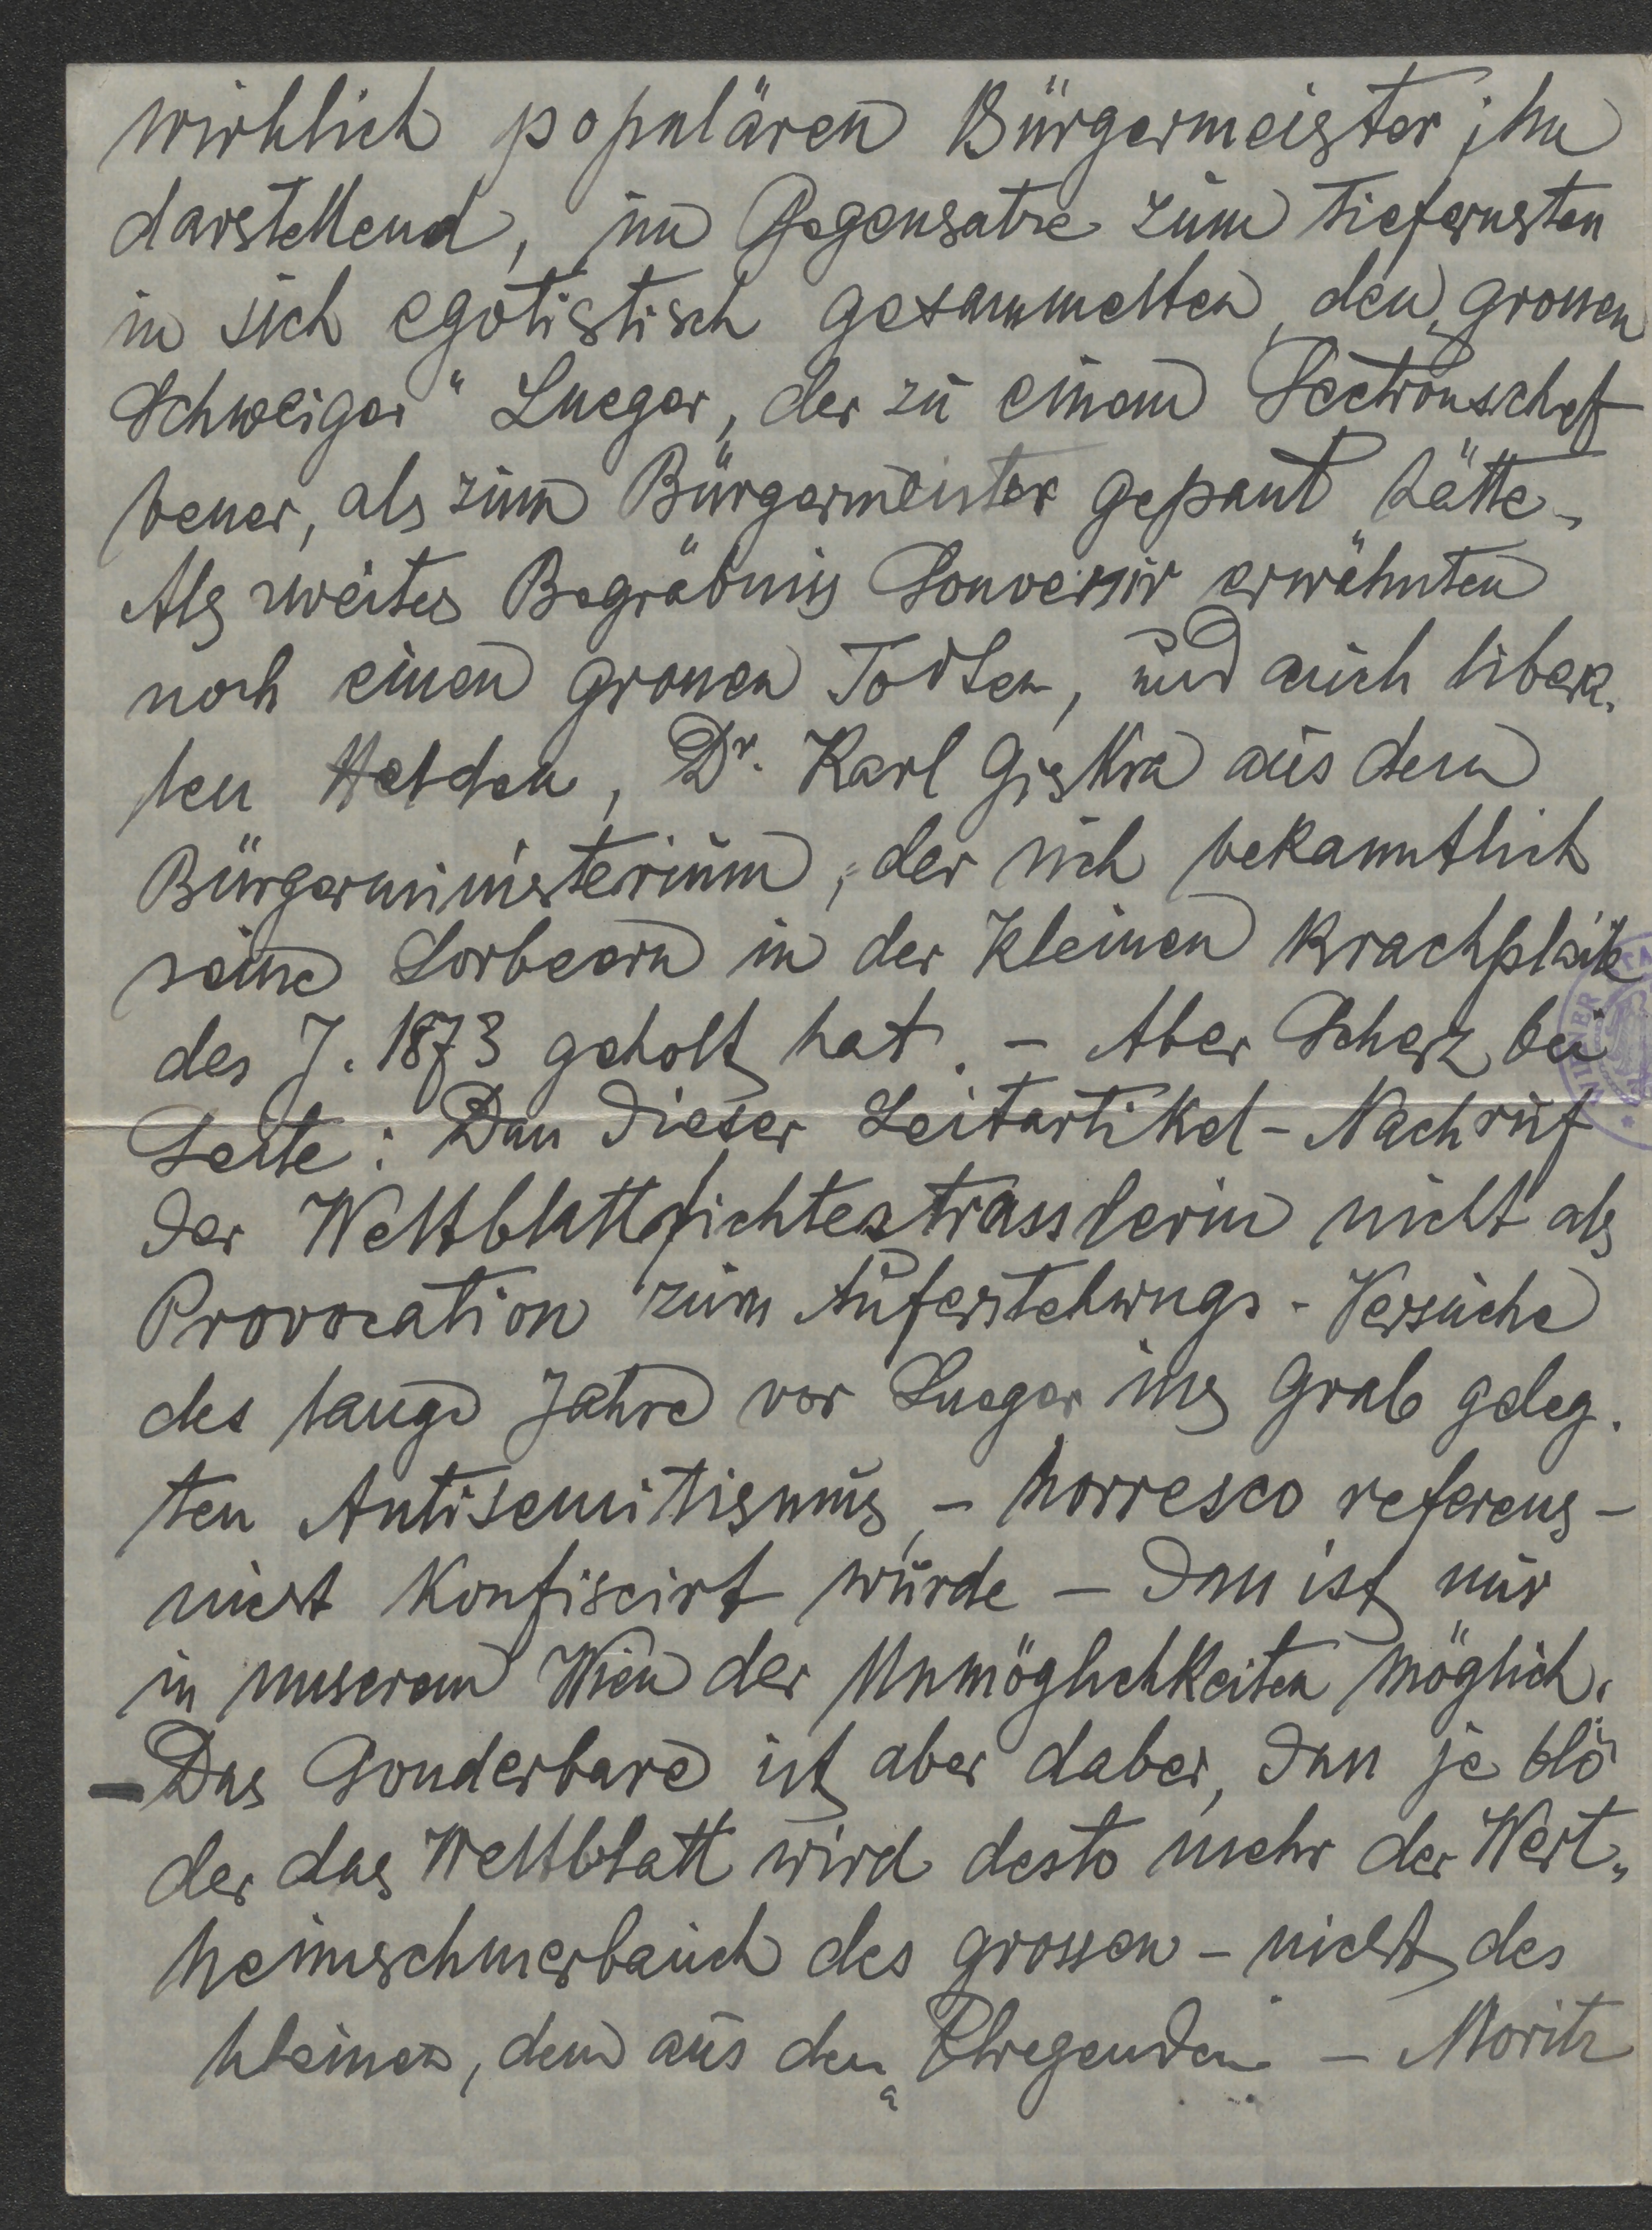 wirklich populären Bürgermeister ihn
darstellend, im Gegensatze zum tiefernsten
in sich egotistisch gesammelten, den „grossen
Schweiger" Lueger, der zu einem Sectionschef
besser, als zum Bürgermeister gepasst hätte.
Als zweites Begräbnis Souvenir erwähnten
noch einen grossen Todten, und auch libera-
len Helden, Dr. Karl Giskra aus dem
Bürgerministerium, der sich bekanntlich
seine Lorbeern in der kleinen Krachpleite
des J. 1873 geholt hat. – Aber Scherz bei
Seite: Dass dieser Leitartikel-Nachruf
der Weltblattfichtestrasslerin nicht als
Provocation zum Auferstehungs-Versuche
des lange Jahre vor Lueger ins Grab geleg-
ten Antisemitismus, – horresco referens –
nicht konfiscirt wurde – dass ist nur
in unserem Wien der Unmöglichkeiten möglich.
– Das Sonderbare ist aber dabei, dass je blö
der das Weltblatt wird desto mehr der Wert-
heimschmerbauch des grossen – nicht des
kleinen, dem aus den „Fliegenden" – Moritz
WIENER STA